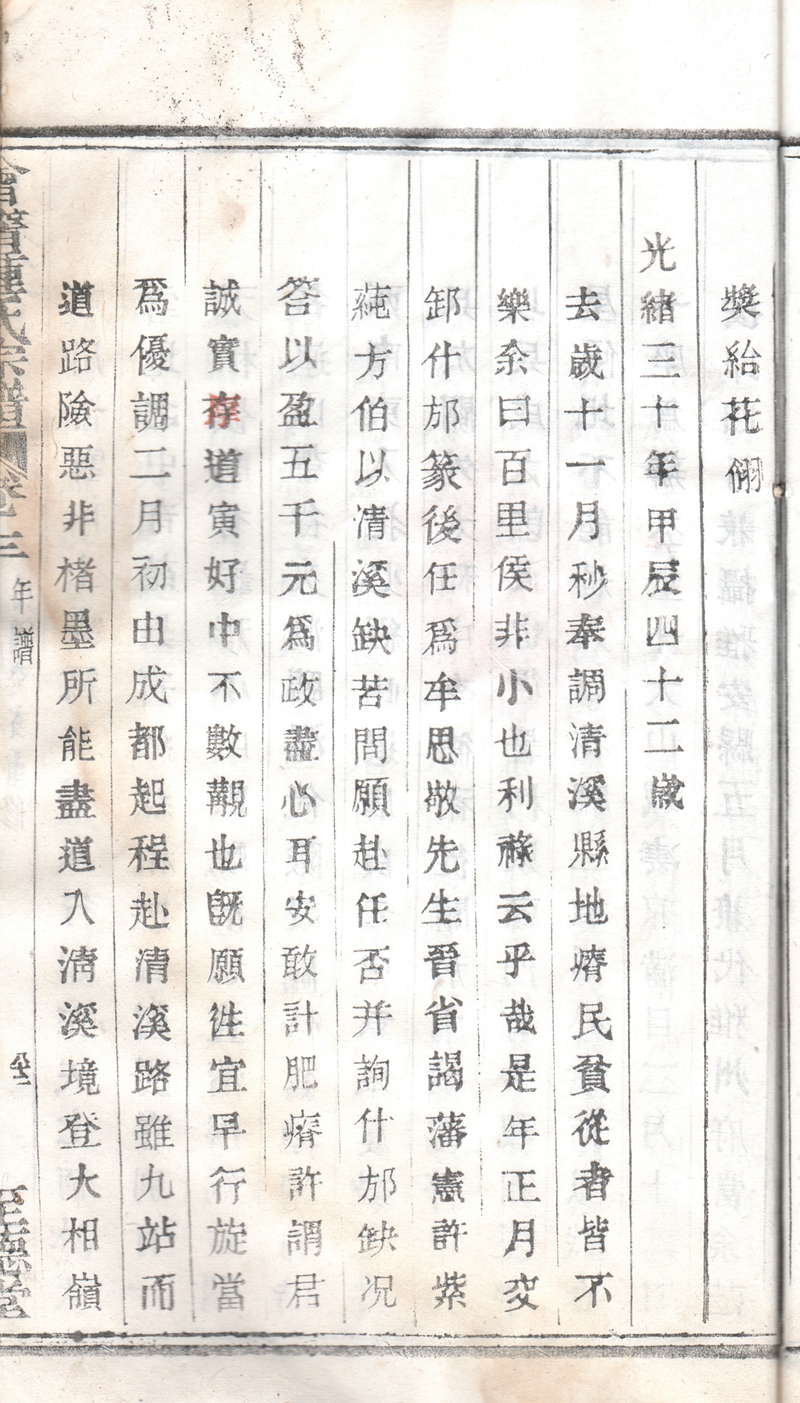 奬給花翎
光緒三十年甲辰四十二歲
去歲十一月秒奉調清溪縣地瘠民貧從者皆不
樂余曰百里侯非小也利祿云乎哉是年正月交
卸什邡篆後任爲牟思敬先生晉省謁藩憲許紫
蒓方伯以清溪缺苦問願赴任否并詢什邡缺况
答以盈五千元爲政盡心耳安敢計肥瘠許謂君
誠實存道寅好中不數覯也旣願徃宜早行旋當
爲優調二月初由成都起程赴清溪路雖九站而
道路險惡非楮墨所能盡道入清溪境登大相嶺
會稽 氏宗譜 卷三 年譜 至德堂